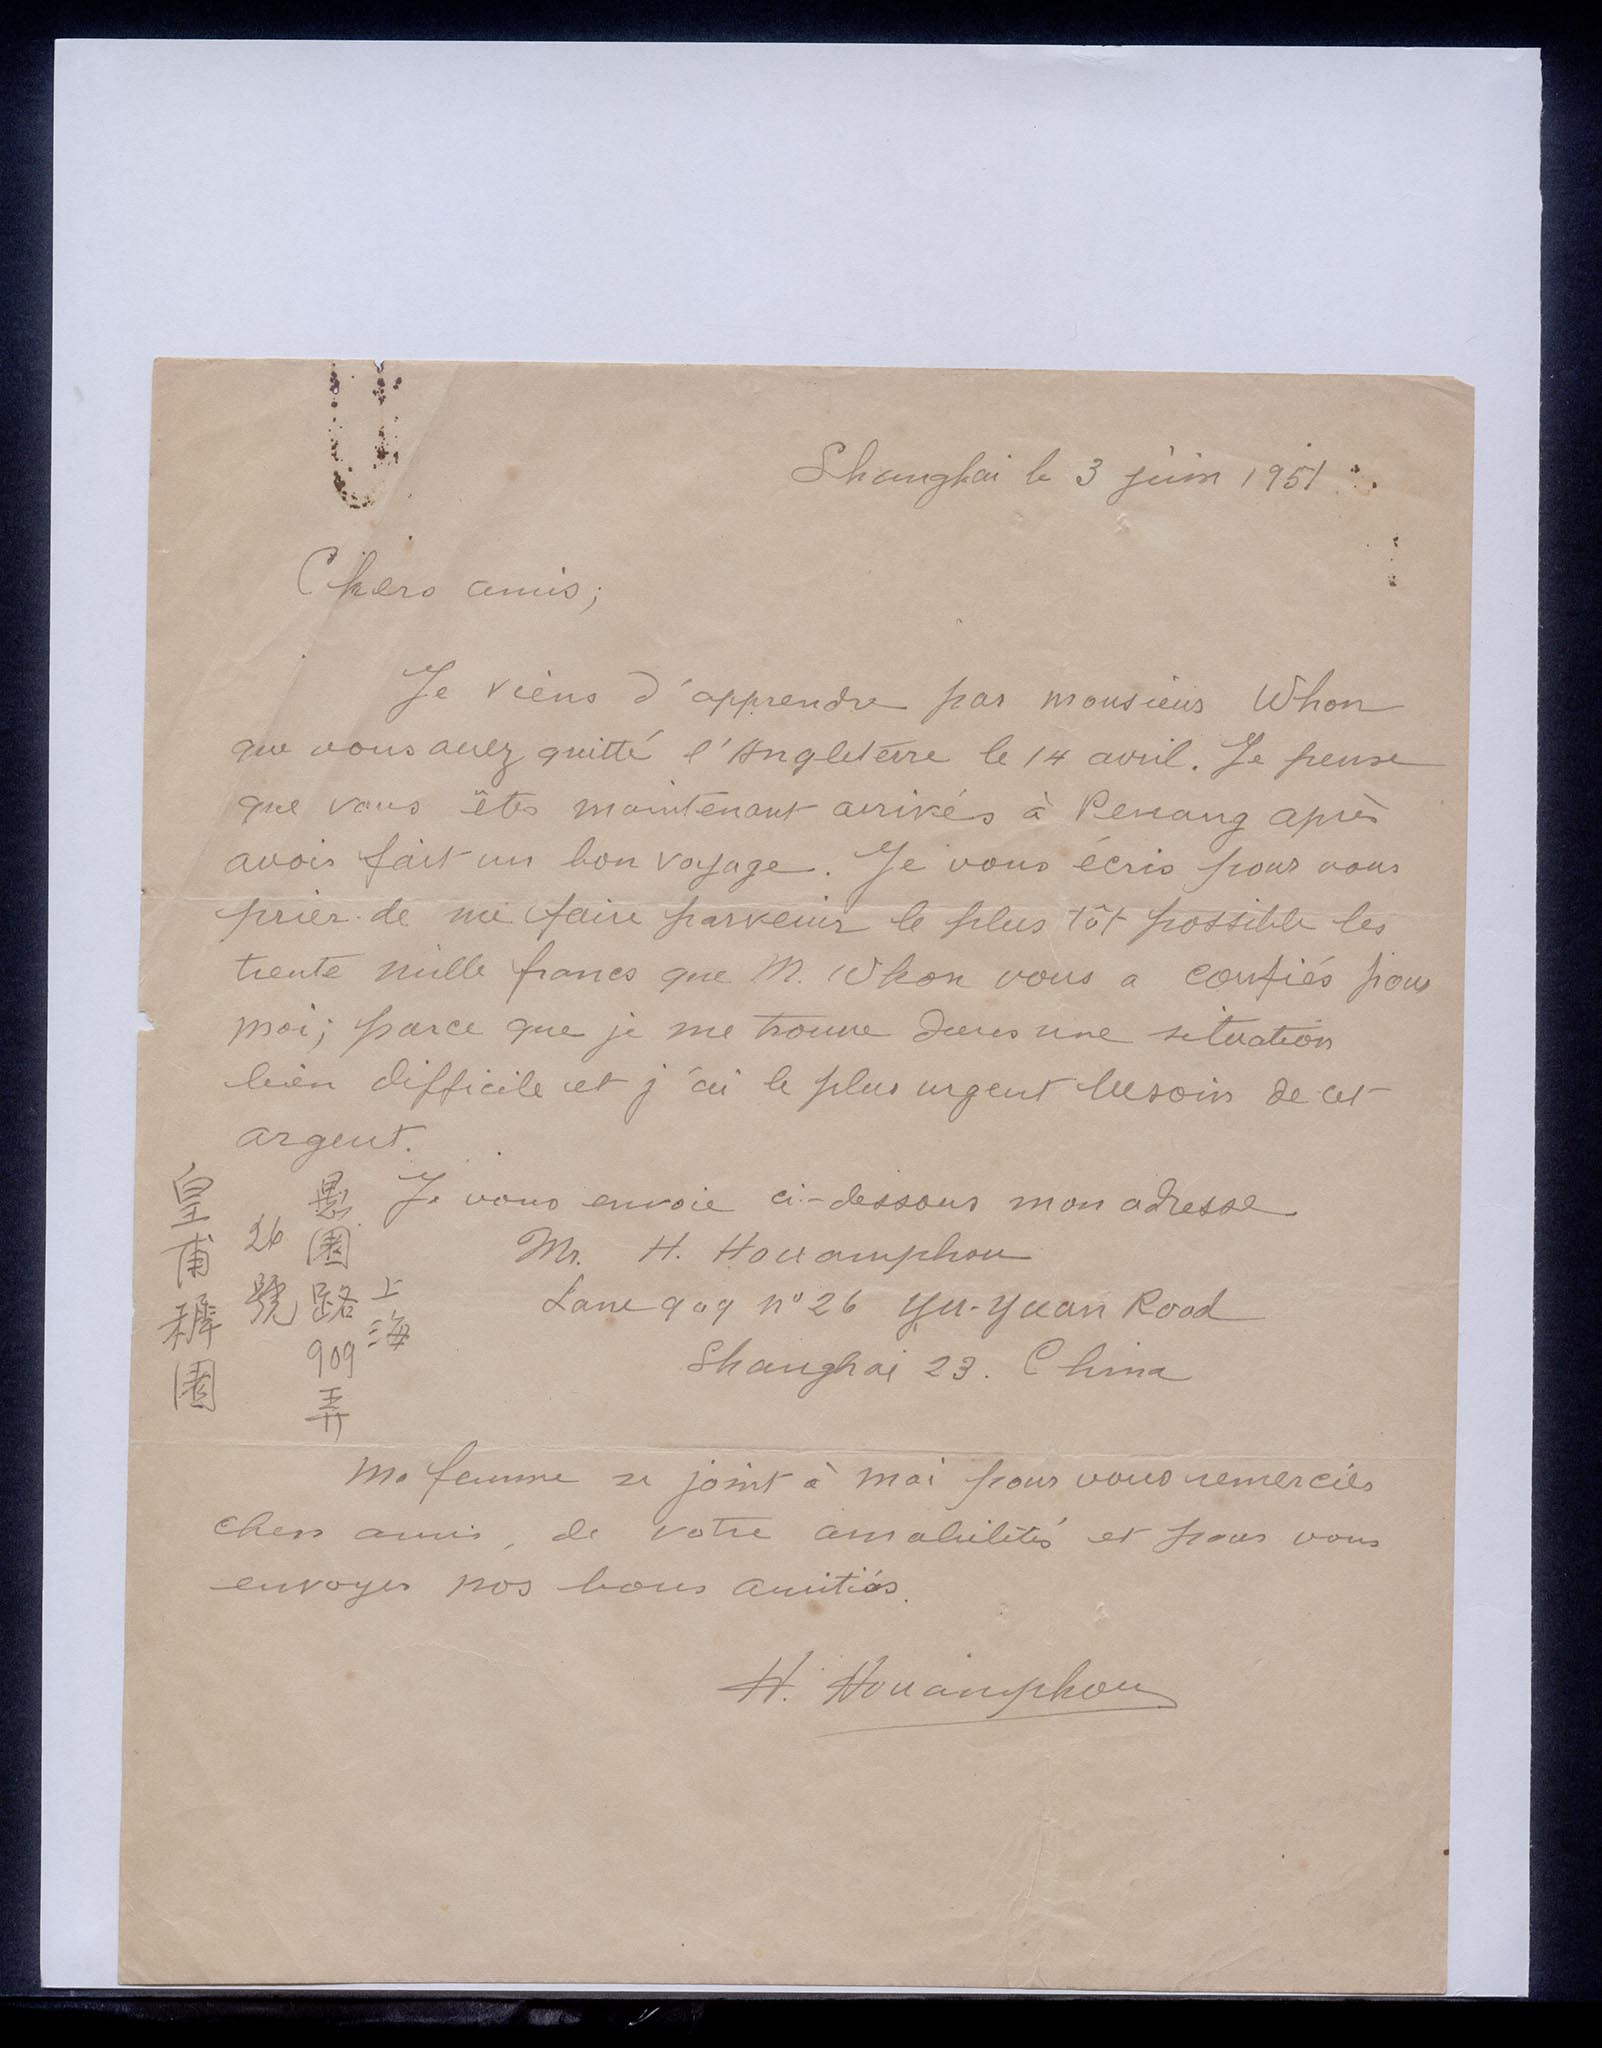 Shanghai le 3 juin 1951
Chers amis;
Je viens d'apprendre par monsieur Whon
que vous avez quitté l'Angleterre le 14 avril. Je pense
que vous êtes maintenant arrivés à Penang après
avoir fait un bon voyage. Je vous écris pour vous
prier de me faire parvenir le plus tôt possible les
trente mille francs que M. Whon vous a confiés pour
moi; parce que je me trouve dans une situation
bien difficile et j'ai le plus urgent besoin de cet
argent.
Je vous envoie ci-dessous mon adresse
Mr. H. Houamphou
Lane 909 n° 26 Yu-Yuan Road
Shanghai 23. China
上海
愚園路909弄
26號
皇甫
Ma femme se joint à moi pour vous remercier
chers amis, de votre amabilités et pour vous
envoyer nos bons amitiés.
H. Houamphou